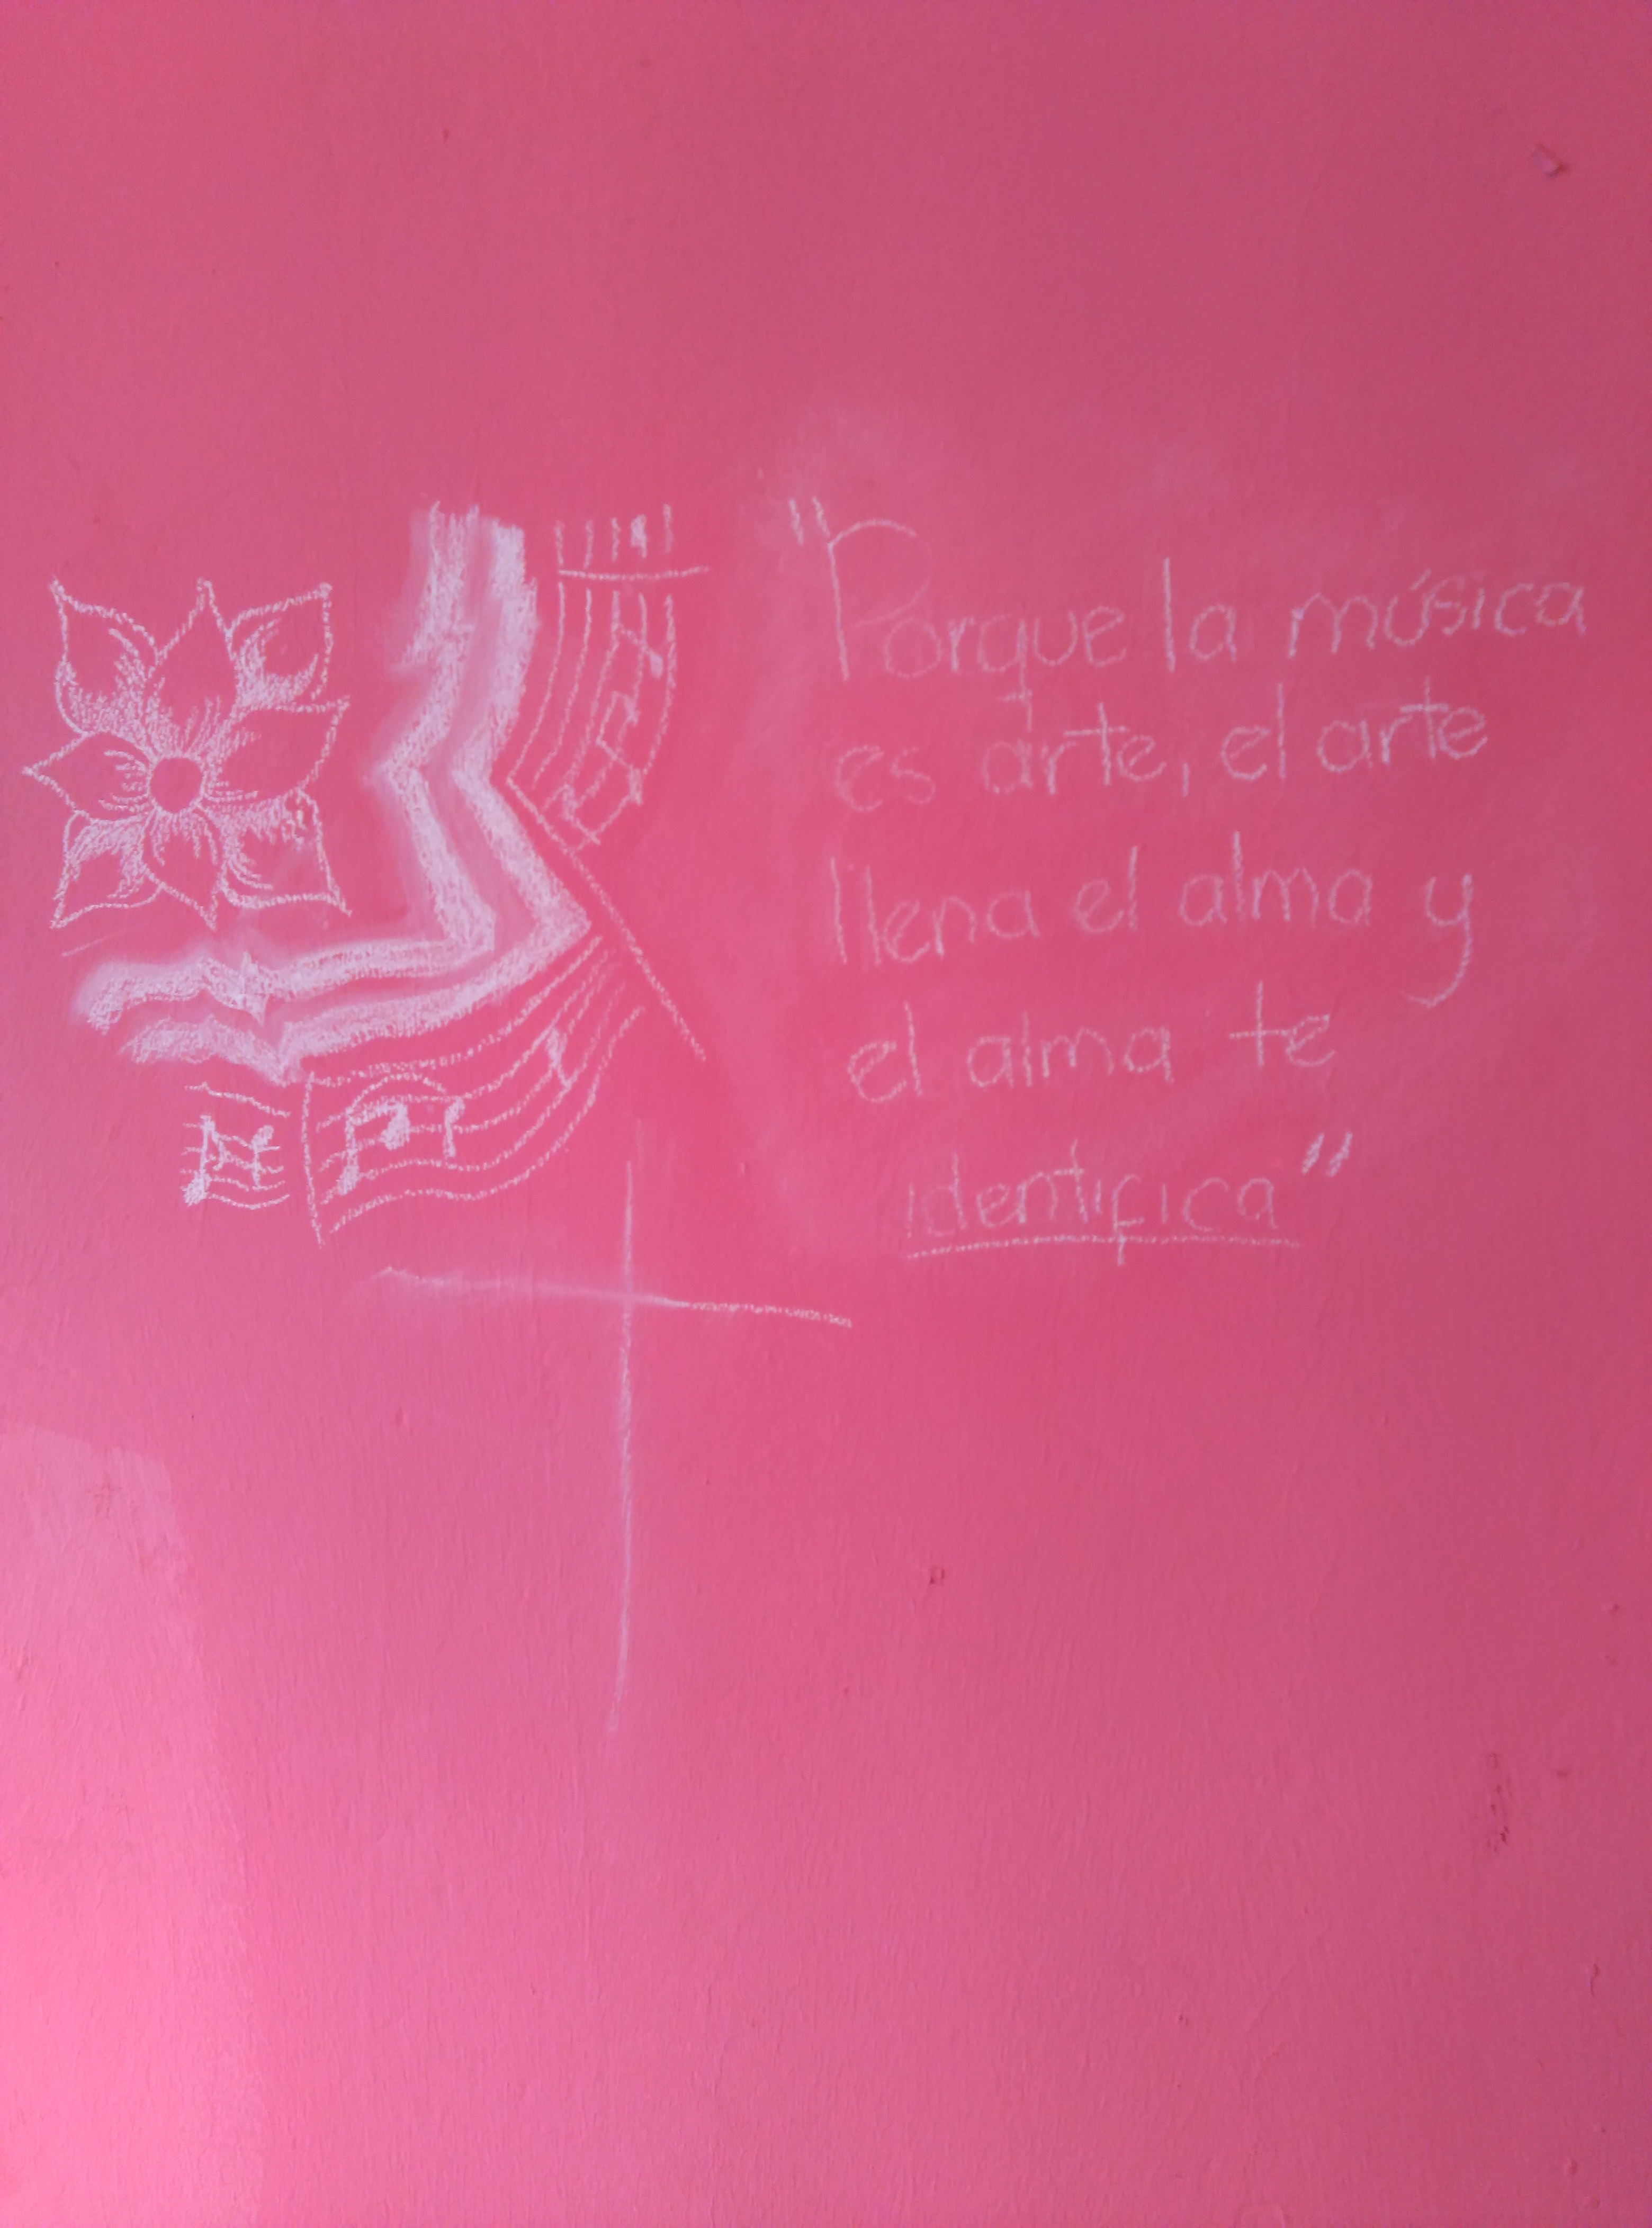 "Porque la música
es arte, el arte
llena el alma y
el alma te
identifica"